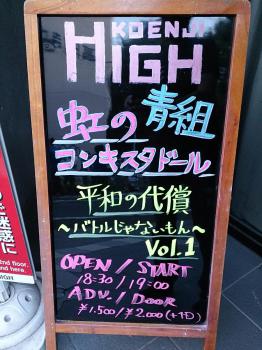 KOENJI
HIGH
虹の
青組
コンキスタドール
平和の代償
〜バトルじゃないもん〜
Vol.1
OPEN/START
18:30/19:00
ADV./DOOR
¥1.500/¥2.000(+1D)